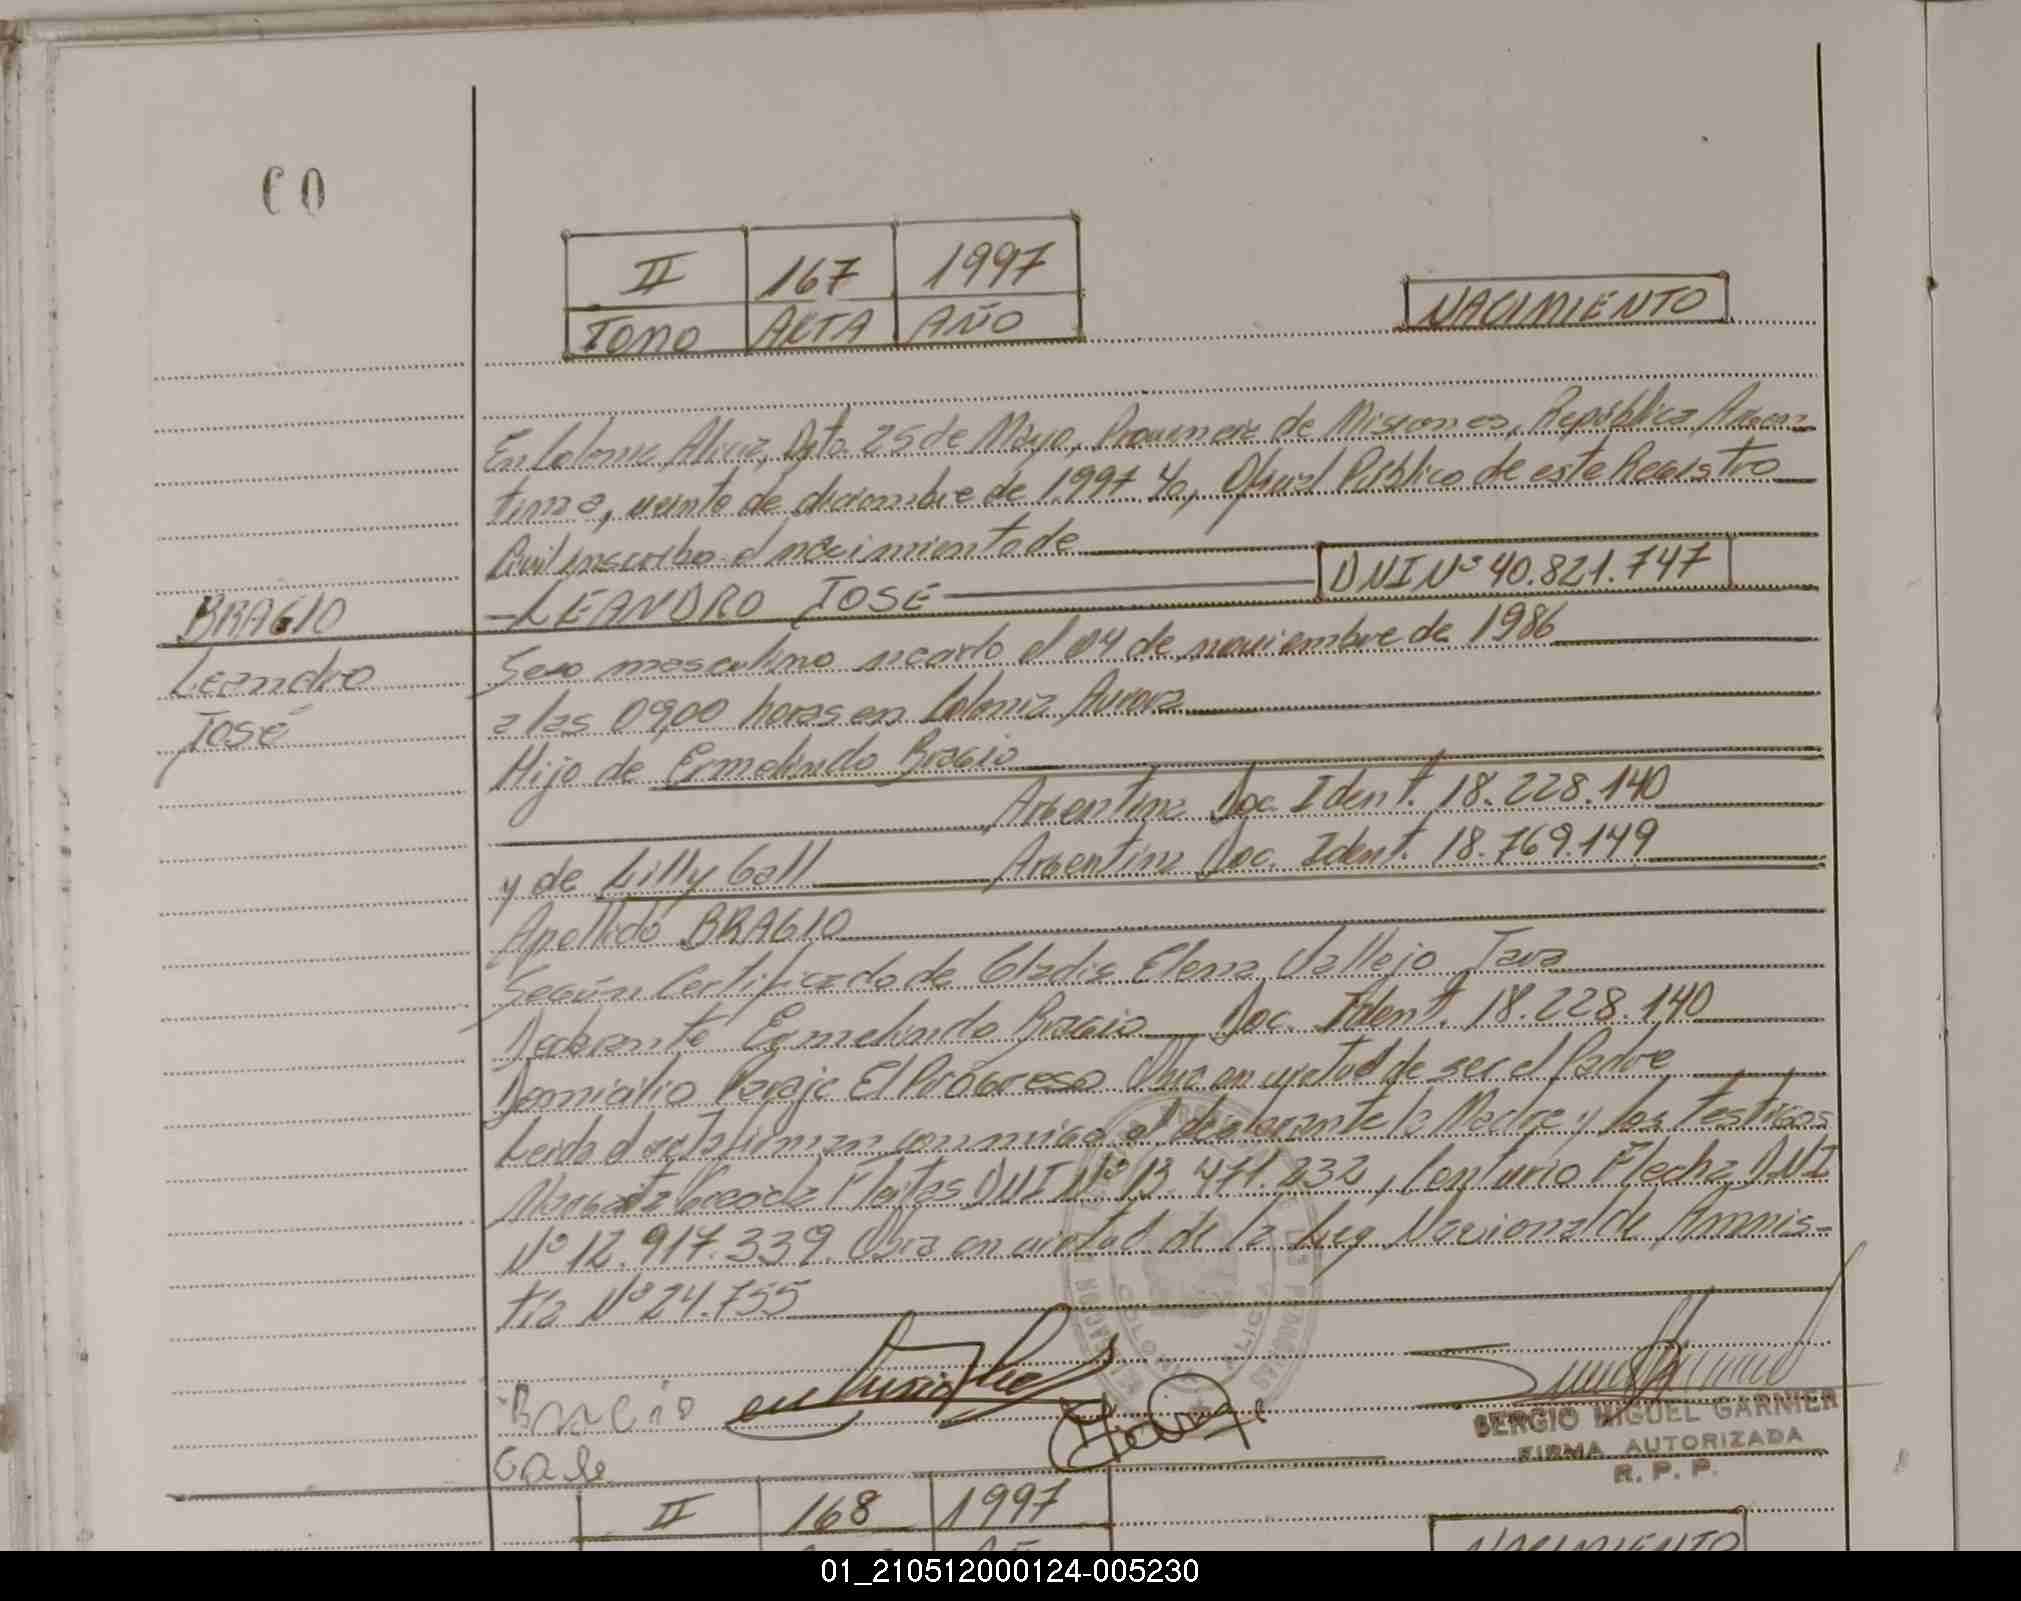 60
II 167 1997
TOMO ACTA AÑO
NACIMIENTO
En Colonia Alicia, Dpto. 25 de Mayo, Provincia de Misiones, República Argen-
tina, veinte de diciembre de 1997. Yo, Oficial Público de este Registro
Civil inscribo el nacimiento de
BRAGIO
Leandro
José
LEANDRO JOSÉ DNI Nº 40.821.747
Sexo masculino nacido el 04 de noviembre de 1986
a las 09,00 horas en Colonia Aurora
Hijo de Ermelindo Bragio
Argentina Doc. Ident. 18.228.140
y de Lilly Gall Argentina Doc. Ident. 18.769.149
Apellido BRAGIO
Según Certificado de Gladis Elena Vallejo Java
Declarante Ermelindo Bragio Doc. Ident. 18.228.140
Domicilio Paraje El Progreso Obra en virtud de ser el Padre
Leida el acta firman conmigo el declarante la Madre y los testigos
Fleitas DNI Nº 13.471.232, Centurio Flecha DNI
Nº 12.917.339. Obra en virtud de la Ley Nacional de Amnis-
tía Nº 24.755
Bracio
Gale
SERGIO MIGUEL GARNIER
FIRMA AUTORIZADA
R. P. P.
II 168 1997
NACIMIENTO
01_210512000124-005230